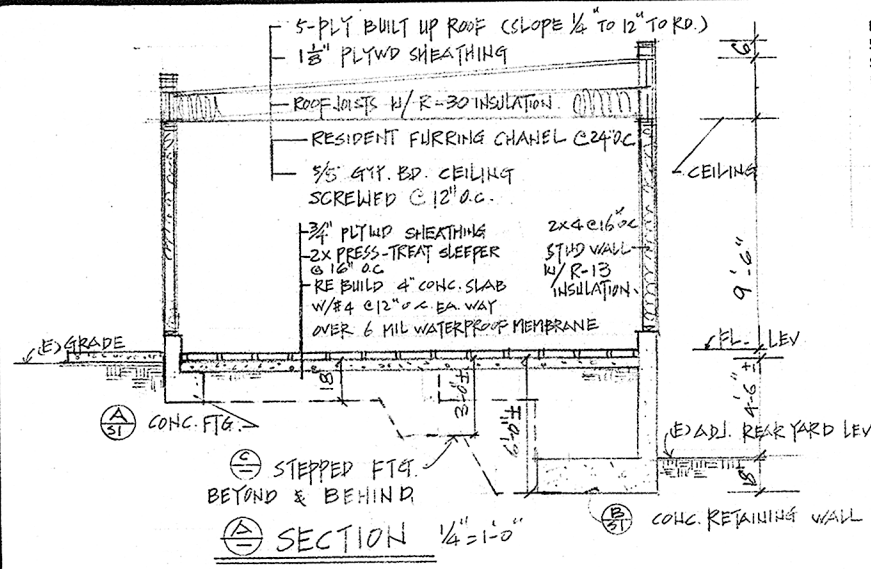 5-PLY BUILT UP ROOF (SLOPE 1/4" TO 12" TO RD.)
1 1/8" PLYWD SHEATHING
6"
ROOF JOISTS W/ R-30 INSULATION
RESIDENT FURRING CHANEL @24"O.C
CEILING
5/5" GYP. BD. CEILING
SCREWED @ 12" O.C.
3/4" PLYWD SHEATHING
2X PRESS-TREAT SLEEPER
@ 16" O.C
RE BUILD 4" CONC. SLAB
W/#4 @12" O.C. EA. WAY
OVER 6 MIL WATERPROOF MEMBRANE
2X4 @16"OC
STUD WALL
W/ R-13
INSULATION
9'-6"
(E) GRADE
FL. LEV
18"
4'-6" ±
A
S1
CONC. FTG.
(E) ADJ. REAR YARD LEV
C
STEPPED FTG.
BEYOND & BEHIND
18"
B
S1
CONC. RETAINING WALL
A
SECTION 1/4"=1'-0"